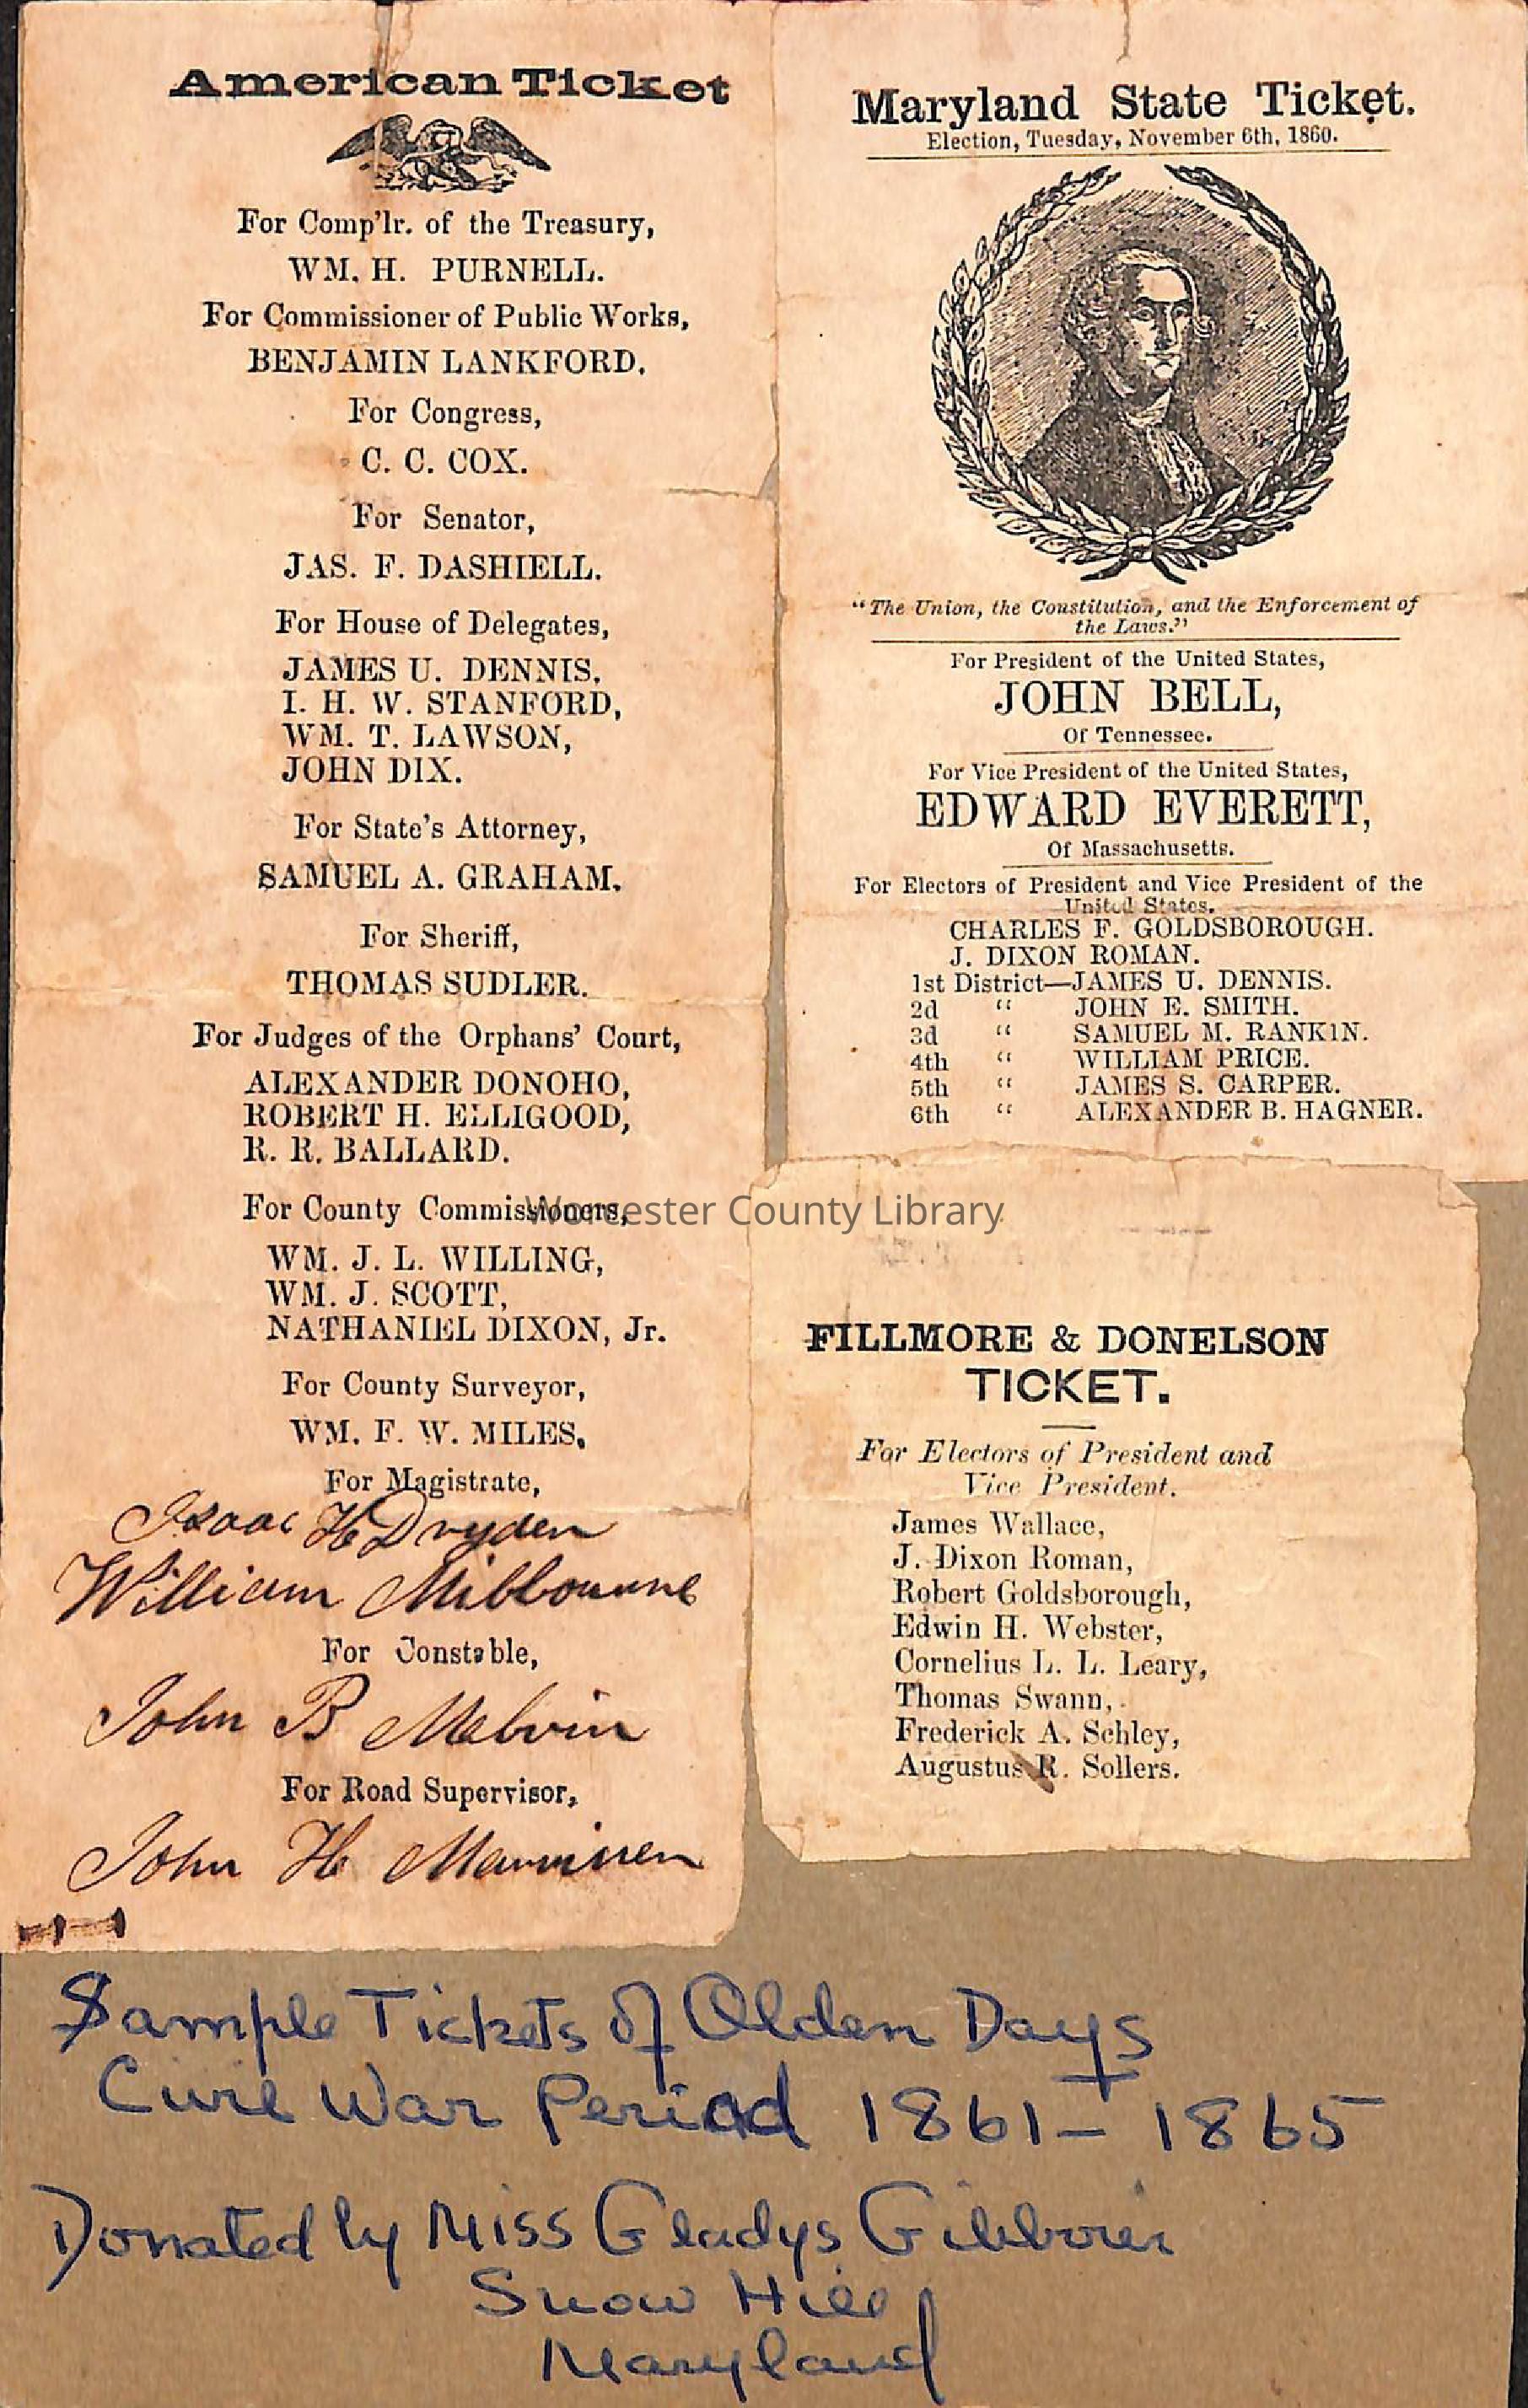 American Ticket
For Comp'lr. of the Treasury,
WM. H. PURNELL.
For Commissioner of Public Works,
BENJAMIN LANKFORD.
For Congress,
C. C. COX.
For Senator,
JAS. F. DASHIELL.
For House of Delegates,
JAMES U. DENNIS,
I. H. W. STANFORD,
WM. T. LAWSON,
JOHN DIX.
For State's Attorney,
SAMUEL A. GRAHAM.
For Sheriff,
THOMAS SUDLER.
For Judges of the Orphans' Court,
ALEXANDER DONOHO,
ROBERT H. ELLIGOOD,
R. R. BALLARD.
For County Commissioners,
WM. J. L. WILLING,
WM. J. SCOTT,
NATHANIEL DIXON, Jr.
For County Surveyor,
WM. F. W. MILES,
For Magistrate,
Isaac H Dryden
William Milbourne
For Constable,
John B Melvin
For Road Supervisor,
John H
Maryland State Ticket.
Election, Tuesday, November 6th, 1860.
"The Union, the Constitution, and the Enforcement of
the Laws."
For President of the United States,
JOHN BELL,
Of Tennessee.
For Vice President of the United States,
EDWARD EVERETT,
Of Massachusetts.
For Electors of President and Vice President of the
United States.
CHARLES F. GOLDSBOROUGH.
J. DIXON ROMAN.
1st District—JAMES U. DENNIS.
2d " JOHN E. SMITH.
3d " SAMUEL M. RANKIN.
4th " WILLIAM PRICE.
5th " JAMES S. CARPER.
6th " ALEXANDER B. HAGNER.
Worcester County Library
FILLMORE & DONELSON
TICKET.
For Electors of President and
Vice President.
James Wallace,
J. Dixon Roman,
Robert Goldsborough,
Edwin H. Webster,
Cornelius L. L. Leary,
Thomas Swann,
Frederick A. Schley,
Augustus R. Sollers.
Sample Tickets of Olden Days
Civil War Period 1861 - 1865
Donated by Miss Gladys
Snow Hill
Maryland